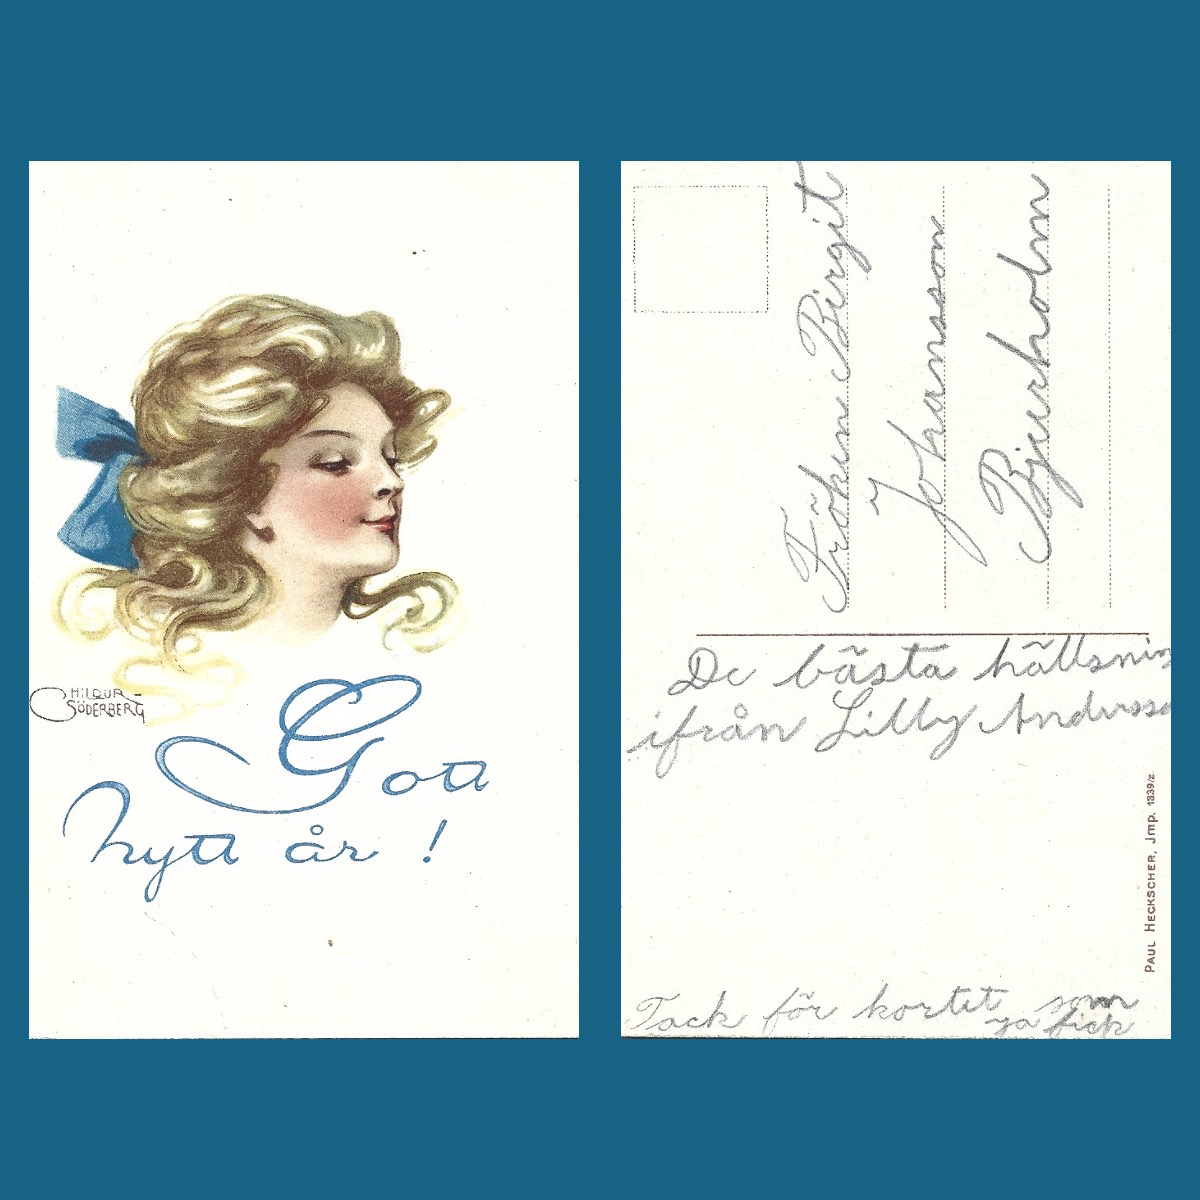 HILDUR
SÖDERBERG
Gott
nytt år !
Fröken Birgit
Johansson
Bjurholm
De bästa hällsnin
ifrån Lilly Anderss
PAUL HECKSCHER, Jmp. 1339/2
Tack för kortet som
ja fick